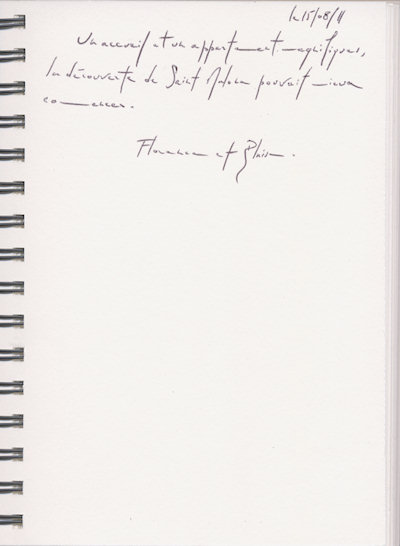 le 15/08/11
Un accueil et un appartement magnifiques,
la découverte de Saint Malo ne pouvait mieux
commencer.
Florence et Blaise.